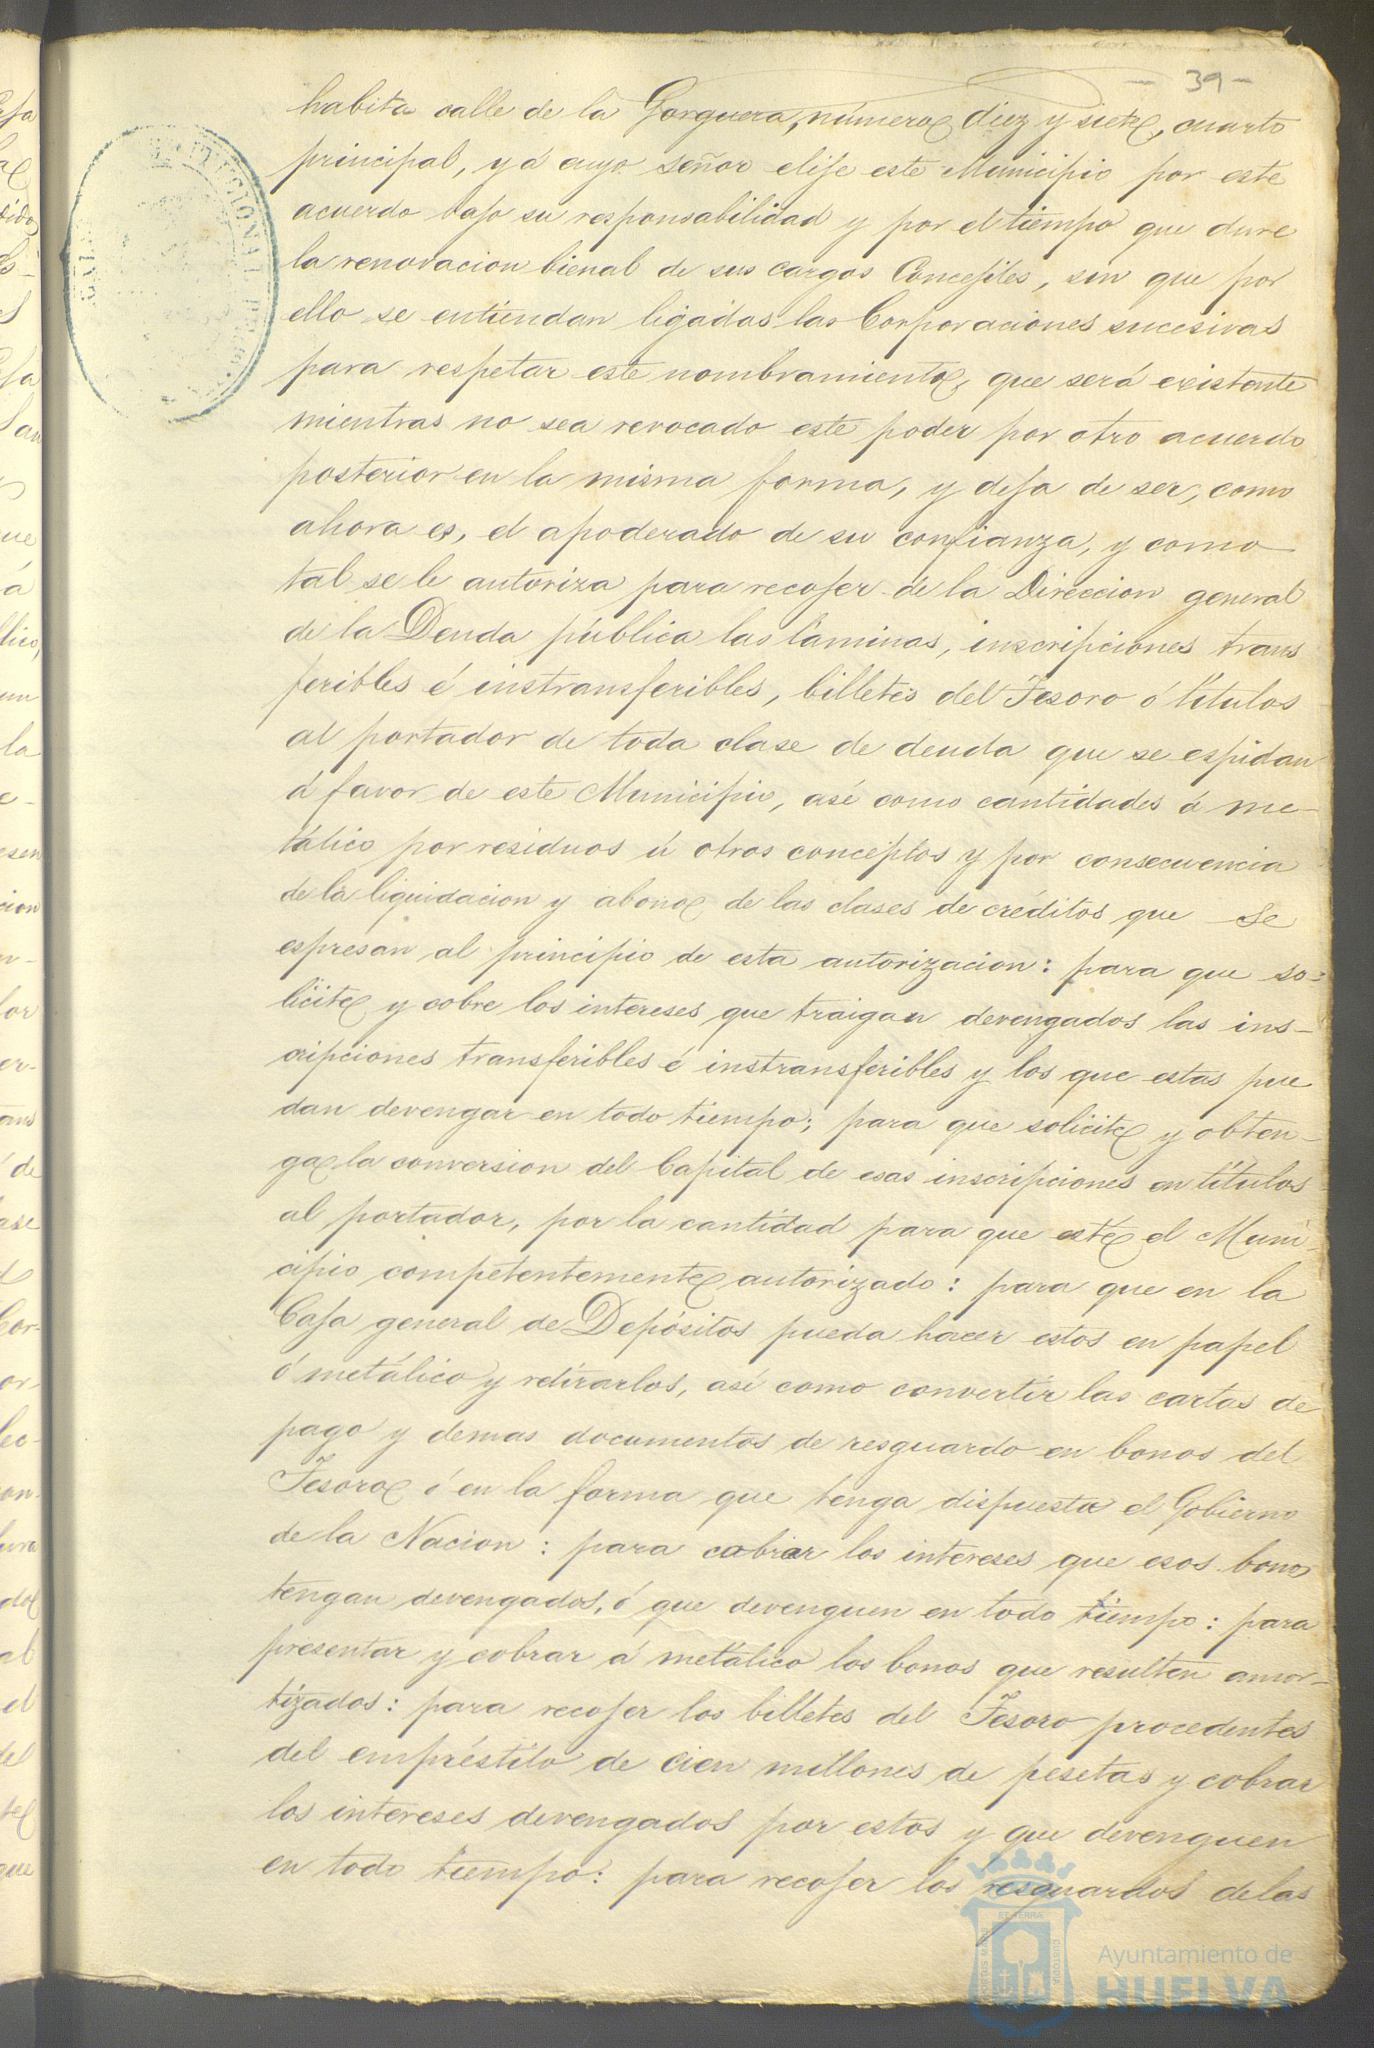 - 39 -
habita calle de la Gorguera, número diez y siete, cuarto
principal, y á cuyo señor elije este Municipio por este
acuerdo bajo su responsabilidad y por el tiempo que dure
la renovacion bienal de sus cargos Concejiles, sin que por
ello se entiendan ligadas las Corporaciones sucesivas
para respetar este nombramiento, que será existente
mientras no sea revocado este poder por otro acuerdo
posterior en la misma forma, y deja de ser, como
ahora es, el apoderado de su confianza, y como
tal se le autoriza para recojer de la Direccion general
de la Deuda pública las láminas, inscripciones trans
feribles é instransferibles, billetes del Tesoro ó títulos
al portador de toda clase de deuda que se espidan
á favor de este Municipio, asi como cantidades á me-
tálico por residuos ú otros conceptos y por consecuencia
de la liquidacion y abono de las clases de créditos que se
espresan al principio de esta autorizacion: para que so-
licite y cobre los intereses que traigan devengados las ins-
cripciones transferibles é instransferibles y los que estas pue
dan devengar en todo tiempo; para que solicite y obten-
ga la conversion del Capital de esas inscripciones en títulos
al portador, por la cantidad para que esté el Muni-
cipio competentemente autorizado: para que en la
Caja general de Depósitos pueda hacer estos en papel
ó metálico y retirarlos, asi como convertir las cartas de
pago y demas documentos de resguardo en bonos del
Tesoro ó en la forma que tenga dispuesta el Gobierno
de la Nacion: para cobrar los intereses que esos bonos
tengan devengados, ó que devenguen en todo tiempo: para
presentar y cobrar á metálico los bonos que resulten amor-
tizados: para recojer los billetes del Tesoro procedentes
del empréstito de cien millones de pesetas y cobrar
los intereses devengados por estos y que devenguen
en todo tiempo: para recojer los resguardos de las
Ayuntamiento de
HUELVA